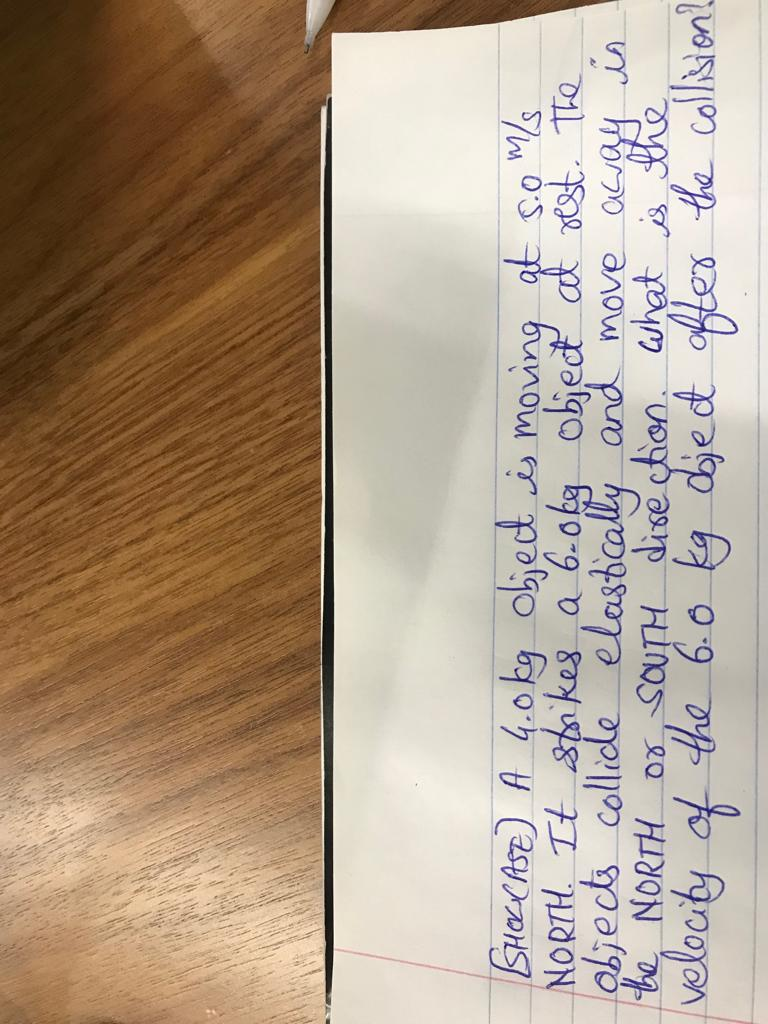 [SHOWCASE] A 4.0 kg object is moving at 5.0 m/s
NORTH. It strikes a 6.0 kg object at rest. The
objects collide elastically and move away in
the NORTH or SOUTH direction. what is the
velocity of the 6.0 kg object after the collision?